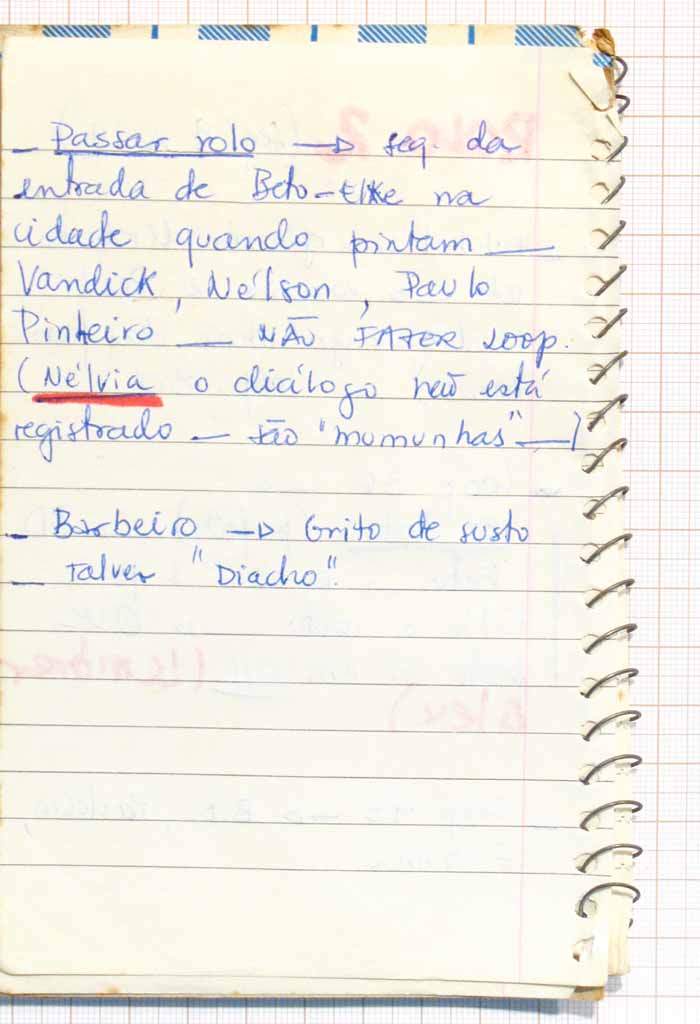 _ Passar rolo → seq. da
entrada de Beto-Elke na
cidade quando pintam —
Vandick, Nélson, Paulo
Pinteiro — NÃO FAZER LOOP.
(Nélvia o diálogo não está
registrado — são "mumunhas" —)
_ Barbeiro → Grito de susto
_ Talvez "Diacho".